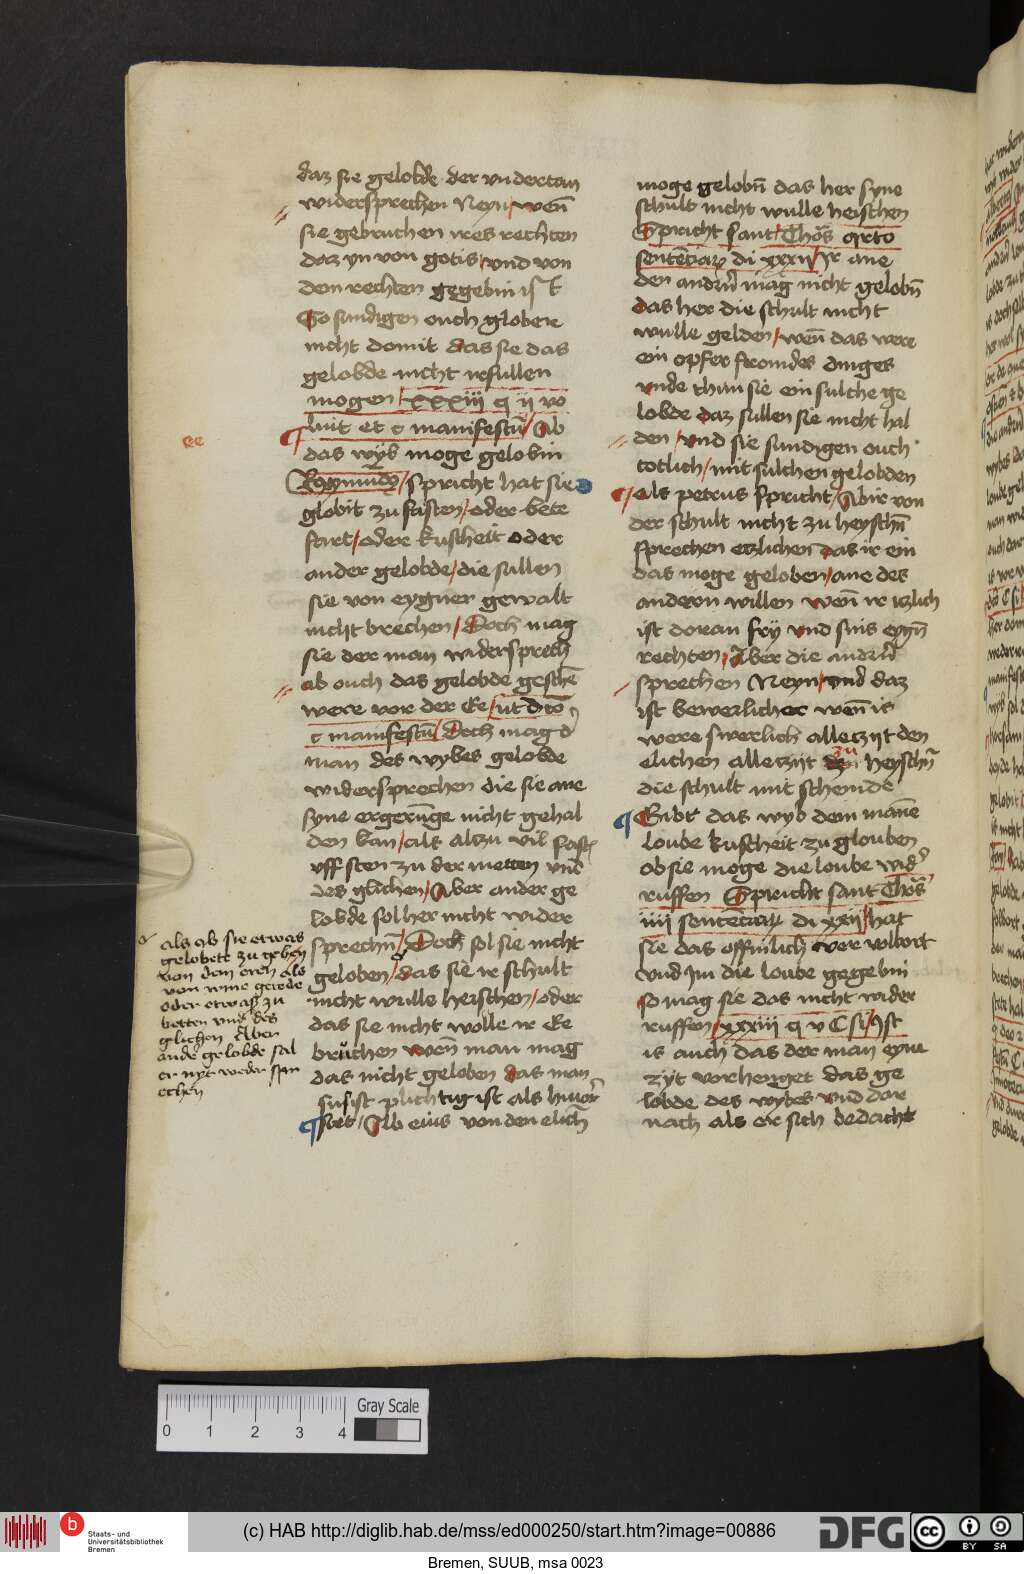 daz sie gelobde der vndertan
widersprechen Neyn / wen̄
sie gebruchen ires rechten
daz yn von gotis / vnd von
dem rechten gegebin ist
So sundigen ouch glober
nicht domit das sie das
gelobde nicht irfullen
mogen / xxxiij q ij vo
luit et c manifestū / Ab
das wyb moge gelobin
Raymundus / spricht hat sie
globit zu fasten / oder bete
fart / oder kuscheit oder
ander gelobde / die sullen
sie von eygner gewalt
nicht brechen / Doch mag
sie der man widersprech
ab ouch das gelobde geschē
were vor der Ee / ut dcō
c manifestū / Doch mag d'
man des wybes gelobde
widersprechen die sie ane
syne ergerūge nicht gehal
den kan / als alzu vil fastē
vff sten zu der metten vnd
des glichen / Aber ander ge
lobde sol her nicht wider
sprechn̄ / Doch sol sie nicht
geloben / das sie ir schult
nicht wulle heischen / oder
das sie nicht wolle ir Ee
bruchen wen̄ man mag
das nicht geloben das man
sust plichtig ist als hurer
Ab eius von den elich
ee
als ab sie etwas
gelobete zu geben
von dem eren als
von wine gerede
oder etwaß zu
betten vnd des
glichen Aber
ande gelobde sal
er nyt weder spr
echen
moge gelobn̄ das her syne
schult nicht wulle heischen
Spricht sant Thoṡ qrto
sentēciar di xxxij / Ir ane
den andern mag nicht gelobn̄
das her die schult nicht
wulle gelden / wen̄ das were
ein opfer fromdes dinges
vnde thun sie ein sulche ge
lobde daz sullen sie nicht hal
den / vnd sie sundigen ouch
totlich / mit sulchen gelobden
als petrus spricht / Abir von
der schult nicht zu heyschn̄
sprechen etzlichen das ir ein
das moge geloben / ane des
andern willen wen̄ ir itzlich
ist doran fry vnd sins eygn̄
rechten / Aber die andern
sprechen Neyn / vnd daz
ist bewerlicher wen̄ is
were swerlich alletzyt den
elichen alletzyt zu heyschn̄
die schult mit schemde
Gibt das wyb dem māne
loube kuscheit zu glouben
ob sie moge die loube wid'
ruffen Spricht sant Thoṡ
iiij sentēciar di xxxij / hat
sie das offinlich ver volbort
vnd Im die loube gegebin
so mag sie das nicht wider
ruffen / xxxiij q v C si / Ist
is auch das der man eyne
zyt vorhenget das ge
lobde des wybes vnd dar
nach als er sich bedacht
0 1 2 3 4
Gray Scale
b
Staats- und
Universitätsbibliothek
Bremen
(c) HAB http://diglib.hab.de/mss/ed000250/start.htm?image=00886
DFG
cc
BY SA
Bremen, SUUB, msa 0023